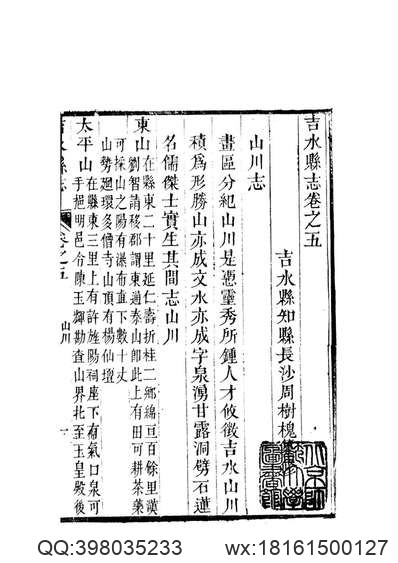 吉水縣志卷之五
吉水縣知縣長沙周樹槐
山川志
畫區分紀山川是慝靈秀所鍾人才攸徵吉水山川
積爲形勝山亦成文水亦成字泉湧甘露洞劈石蓮
名儒傑士實生其間志山川
東山在縣東二十里延仁壽折桂二鄉綿亘百餘里漢
劉智請移郡謂東通泰山卽此上有田可耕茶藥
可採山之陽有瀑布直下數十丈
山勢廻環多僧寺山頂有楊仙壇
太平山在縣東三里上有許旌陽祠座下有氣口泉可
手挹明邑令陳玉輝勘查山界北至玉皇殿後
吉水縣志
卷之五
山川
一
QQ:398035233
wx:18161500127